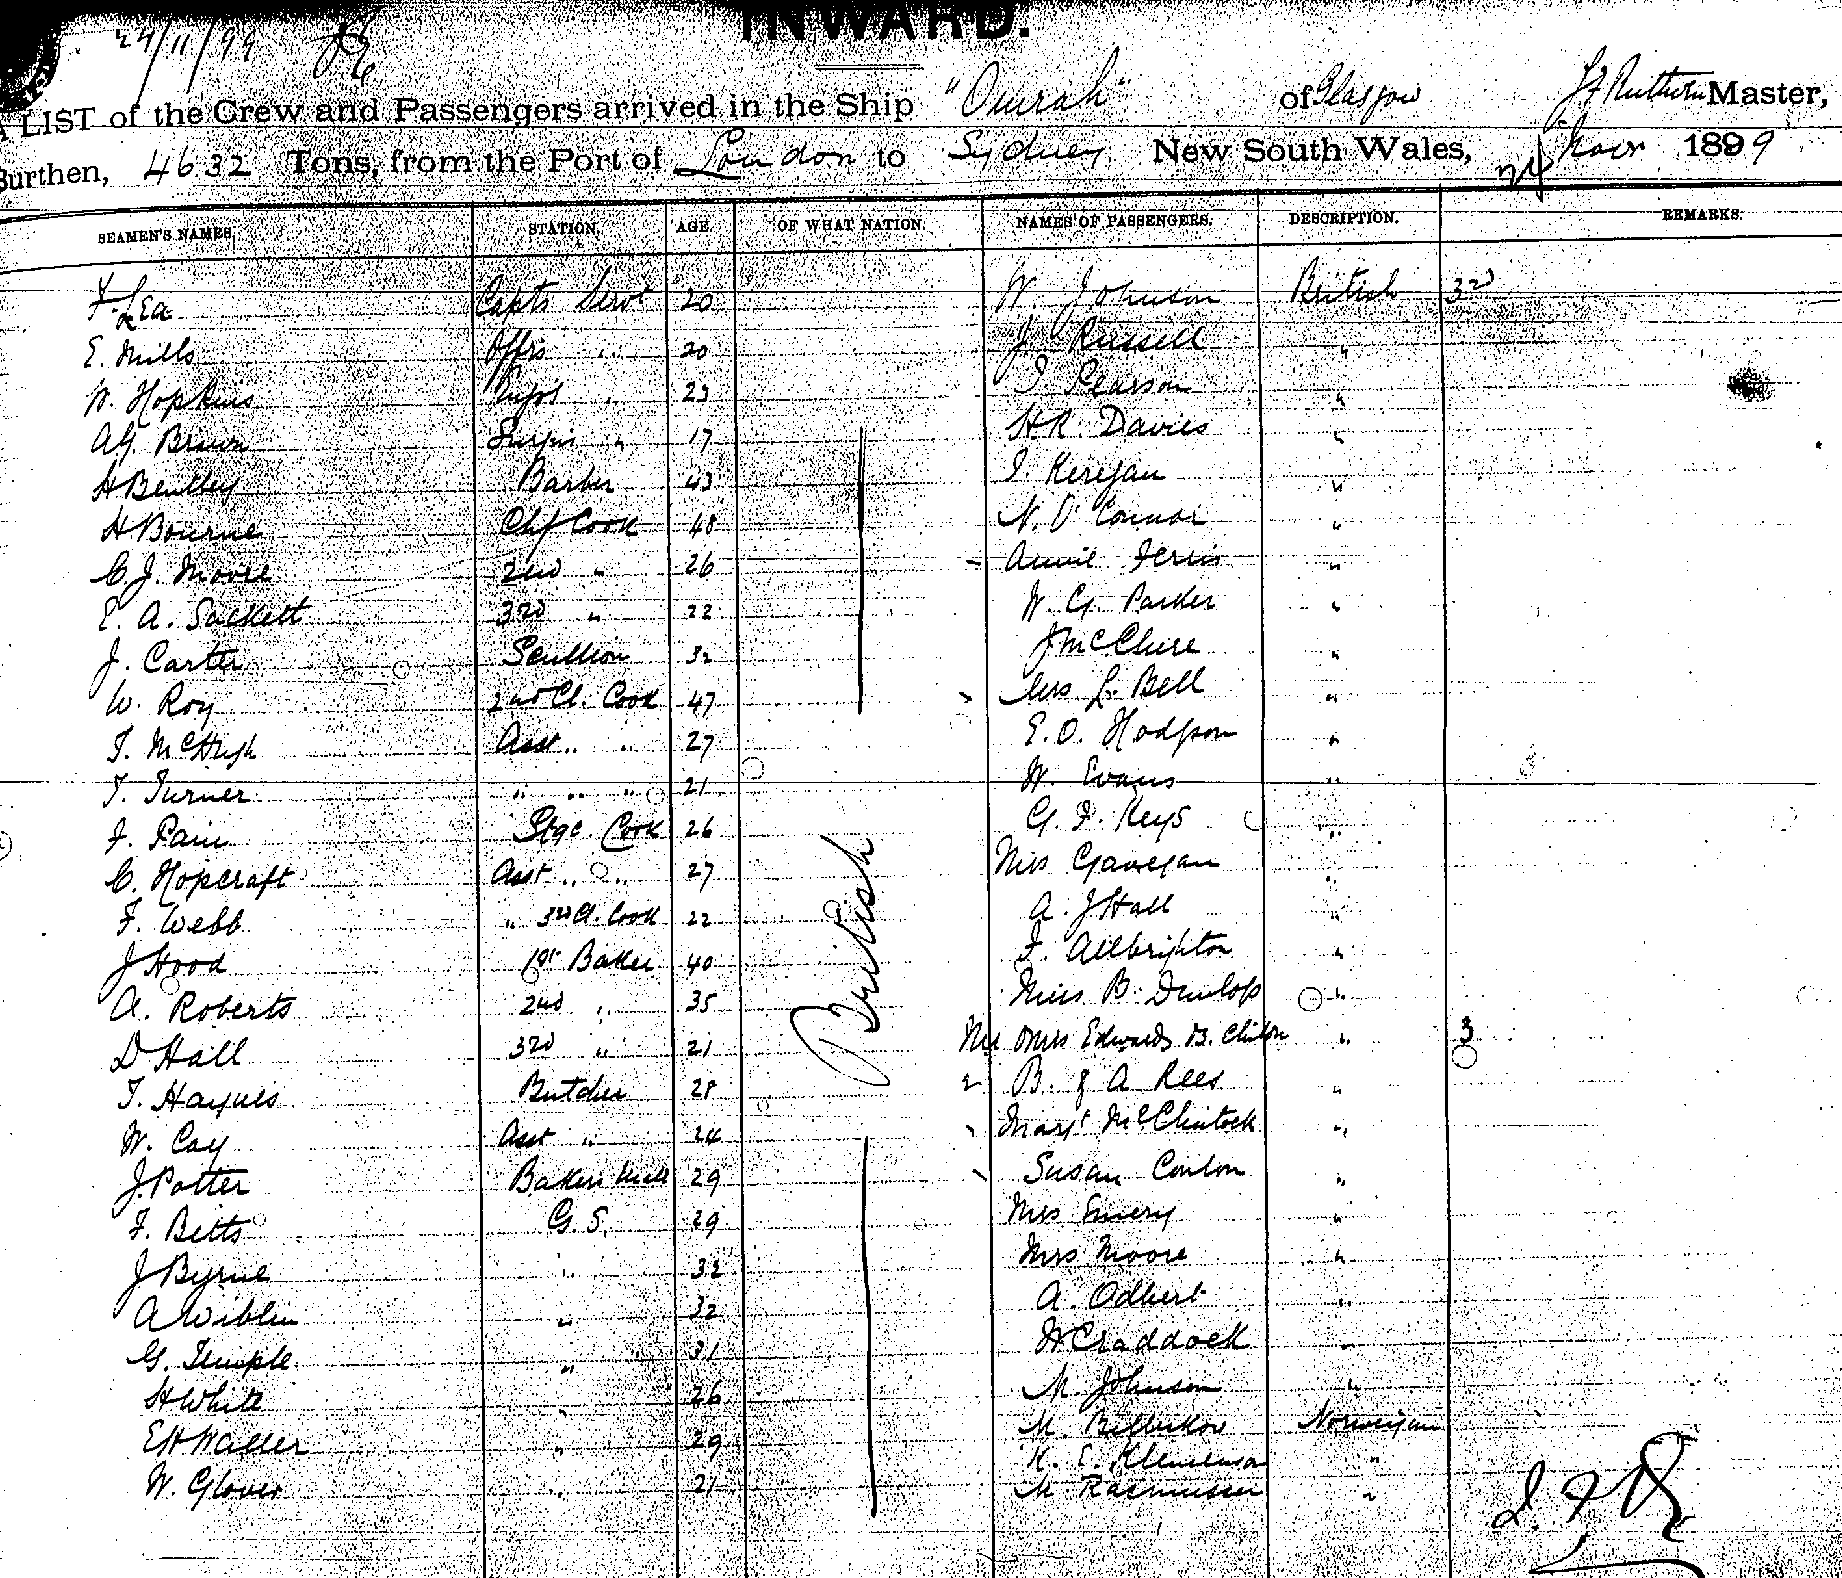 24/11/99
INWARD.
A LIST of the Crew and Passengers arrived in the Ship "Omrah" of Glasgow Master,
Burthen, 4632 Tons, from the Port of London to Sydney New South Wales, 24 Novr 1899
SEAMEN'S NAMES. STATION. AGE. OF WHAT NATION. NAMES OF PASSENGERS. DESCRIPTION. REMARKS.
Lea Capts Servt 20 W. Johnson British 3rd
E. Mills Offrs " 20 J Russell "
W. Hopkins " 23 Pearson "
A.G. Brown " 17 H.R. Davies "
H Bentley Barber 43 Keregan "
H Bourne Chf Cook 48 N. O'Connor "
C. J. Moore 2nd " 26 Annie Ferris "
E. A. Sackett 3rd " 22 W. G. Parker "
J. Carter Scullion 32 J McClure "
W. Roy 2nd Cl. Cook 47 Mrs L. Bell "
T. McHugh Asst " " 27 E. O. Hodgson "
T. Turner " " " 21 W. Evans "
F. Pain Stge Cook 26 G. F. Keys "
C. Hopcraft Asst " " 27 Miss Gavegan "
F. Webb " 3rd Cl. Cook 22 A. J Hall "
J Hood 1st Baker 40 F. Allbrighton "
A. Roberts 2nd " 35 Miss B. Dunlop "
D Hall 3rd " 21 Mr Mrs Edwards B. Clinton " 3
T. Haynes Butcher 28 2 B. & A Rees "
W. Cay Asst " 24 Margt McClintock "
J. Potter Bakers Mate 29 Susan Conlon "
F. Betts G. S. 29 Mrs Emery "
J Byrne " 32 Mrs Moore "
A Wiblin " 32 A. Odbert "
G. Temple " 31 W Craddock "
H White " 26 M. Johnson "
E H Waller " 29 M. Norwegian
W. Glover " 21 K. E. Klemensen "
M Rasmussen "
British